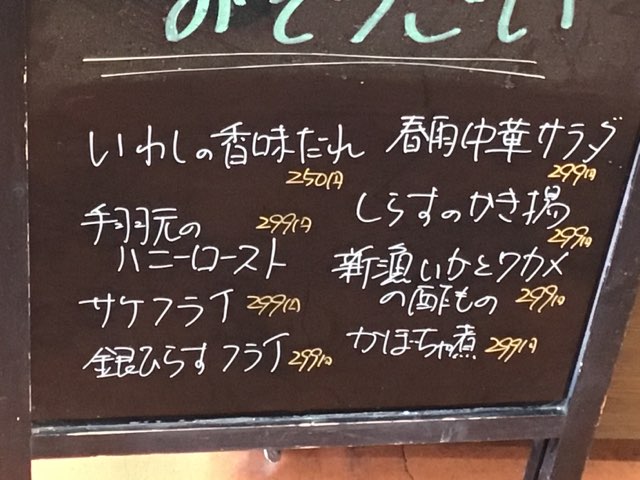 いわしの香味だれ
250円
手羽元の 299円
ハニーロースト
サケフライ 299円
銀ひらすフライ 299円
春雨中華サラダ
299円
しらすのかき揚
299円
新漁いかとワカメ
の酢もの 299円
かぼちゃ煮 299円